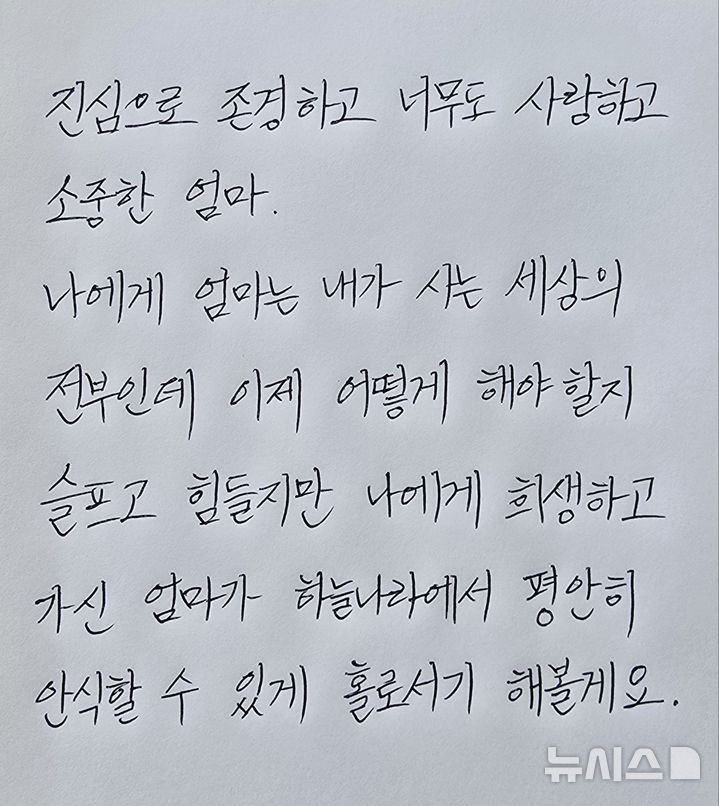 진심으로 존경하고 너무도 사랑하고
소중한 엄마.
나에게 엄마는 내가 사는 세상의
전부인데 이제 어떻게 해야 할지
슬프고 힘들지만 나에게 희생하고
가신 엄마가 하늘나라에서 평안히
안식할 수 있게 홀로서기 해볼게요.
뉴시스